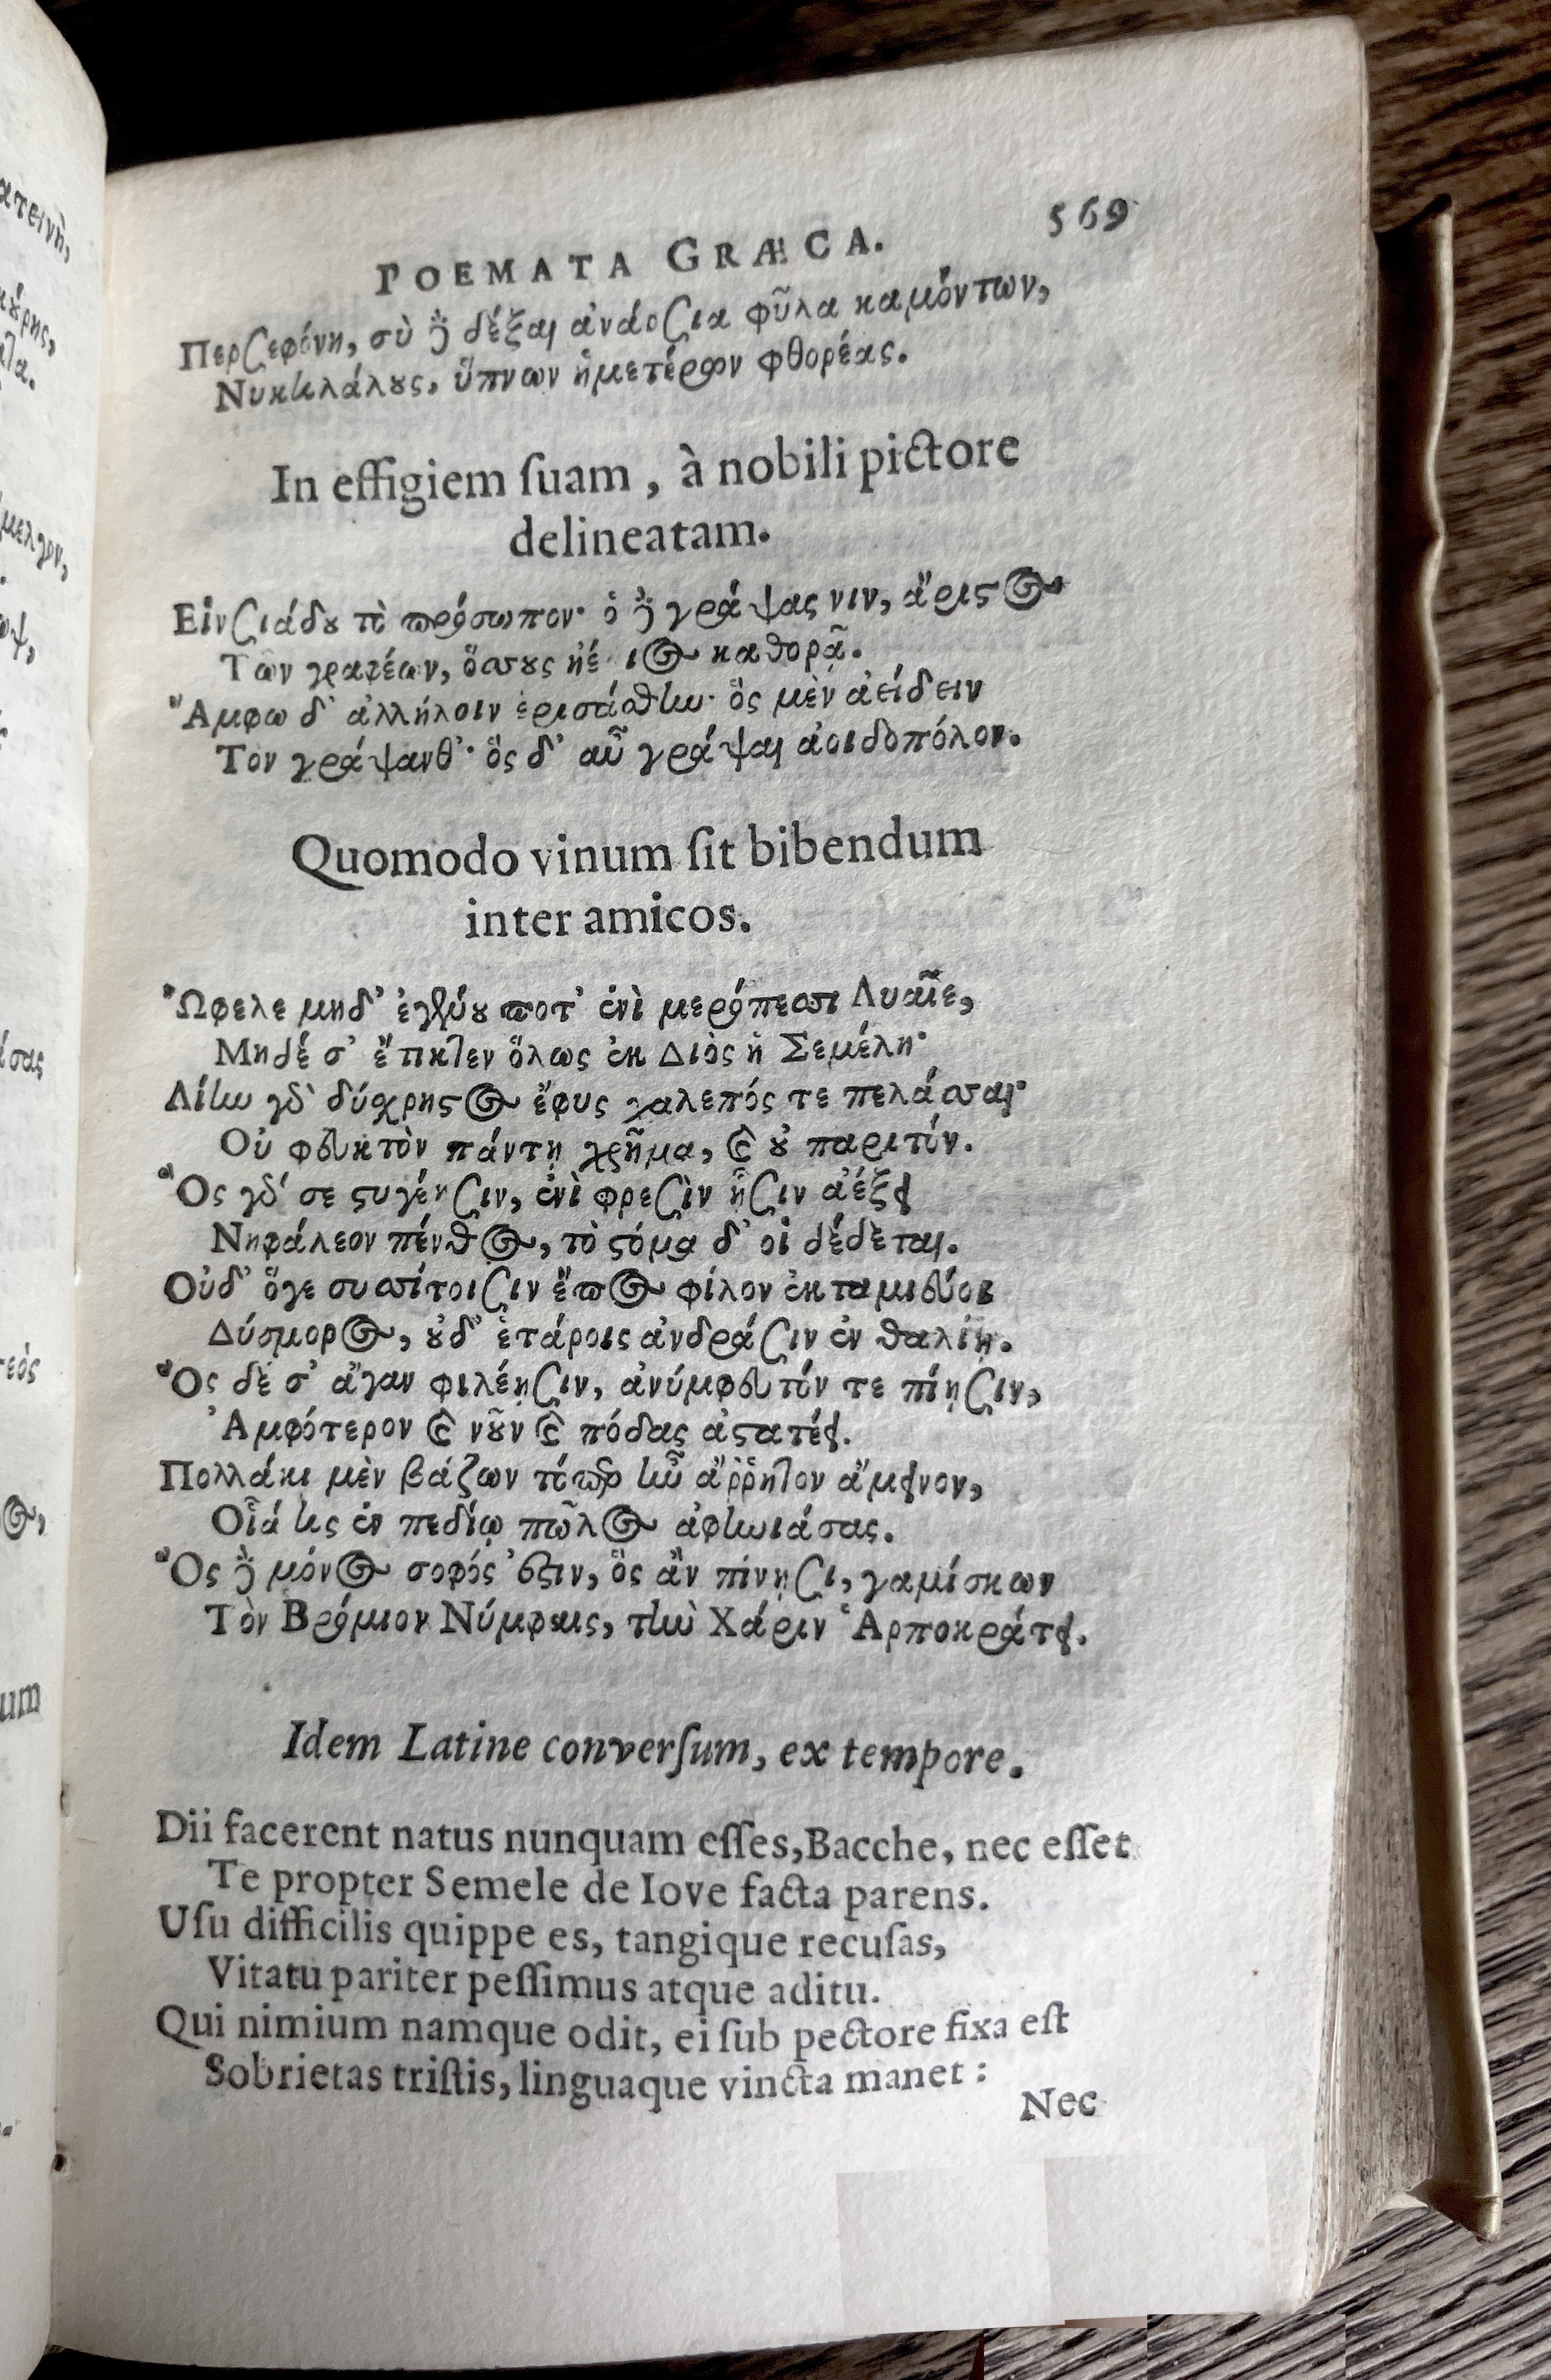 POEMATA GRÆCA.
569
Περσεφόνη, σὺ δὲ δέξαι ἀνάρσια φῦλα καμόντων,
Νυκτιλάλους, ὕπνων ἡμετέρων φθορέας.
In effigiem ſuam, à nobili pictore
delineatam.
Εἰνσιάδου τὸ πρόσωπον· ὁ δὲ γράψας νιν, ἄριστος
Τῶν γραφέων, ὅσσους καθορᾷ.
Ἄμφω δ' ἀλλήλοιν ἐρισάσθην· ὃς μὲν ἀείδειν
Τον γράψανθ'· ὃς δ' αὖ γράψαι ἀοιδοπόλον.
Quomodo vinum ſit bibendum
inter amicos.
Ὤφελε μηδ' ἐγένου ποτ' ἐνὶ μερόπεσσι Λυαῖε,
Μηδέ σ' ἔτικτεν ὅλως ἐκ Διὸς ἡ Σεμέλη·
Λίην γὰρ δύχρηστος ἔφυς χαλεπός τε πελάσσαι·
Οὐ φευκτὸν πάντη χρῆμα, καὶ οὐ παριτόν.
Ὃς γάρ σε στυγέησιν, ἐνὶ φρεσὶν ᾗσιν ἀέξει
Νηφάλεον πένθος, τὸ στόμα δ' οἱ δέδεται.
Οὐδ' ὅγε συσσίτοισιν ἔπος φίλον ἐκταμιεύοι
Δύσμορος, οὐδ' ἑτάροις ἀνδράσιν ἐν θαλίῃ.
Ὃς δέ σ' ἄγαν φιλέῃσιν, ἀνύμφευτόν τε πίῃσιν,
Ἀμφότερον καὶ νοῦν καὶ πόδας ἀστατέει.
Πολλάκι μὲν βάζων τόπερ ἦν ἄῤῥητον ἄμεινον,
Οἷά τις ἐν πεδίῳ πῶλος ἀφηνιάσας.
Ὃς δὲ μόνος σοφός 'στιν, ὃς ἂν πίνῃσι, γαμίσκων
Τὸν Βρόμιον Νύμφαις, τὴν Χάριν Ἁρποκράτει.
Idem Latine converſum, ex tempore.
Dii facerent natus nunquam eſſes, Bacche, nec eſſet
Te propter Semele de Iove facta parens.
Uſu difficilis quippe es, tangique recuſas,
Vitatu pariter peſſimus atque aditu.
Qui nimium namque odit, ei ſub pectore fixa eſt
Sobrietas triſtis, linguaque vincta manet:
Nec